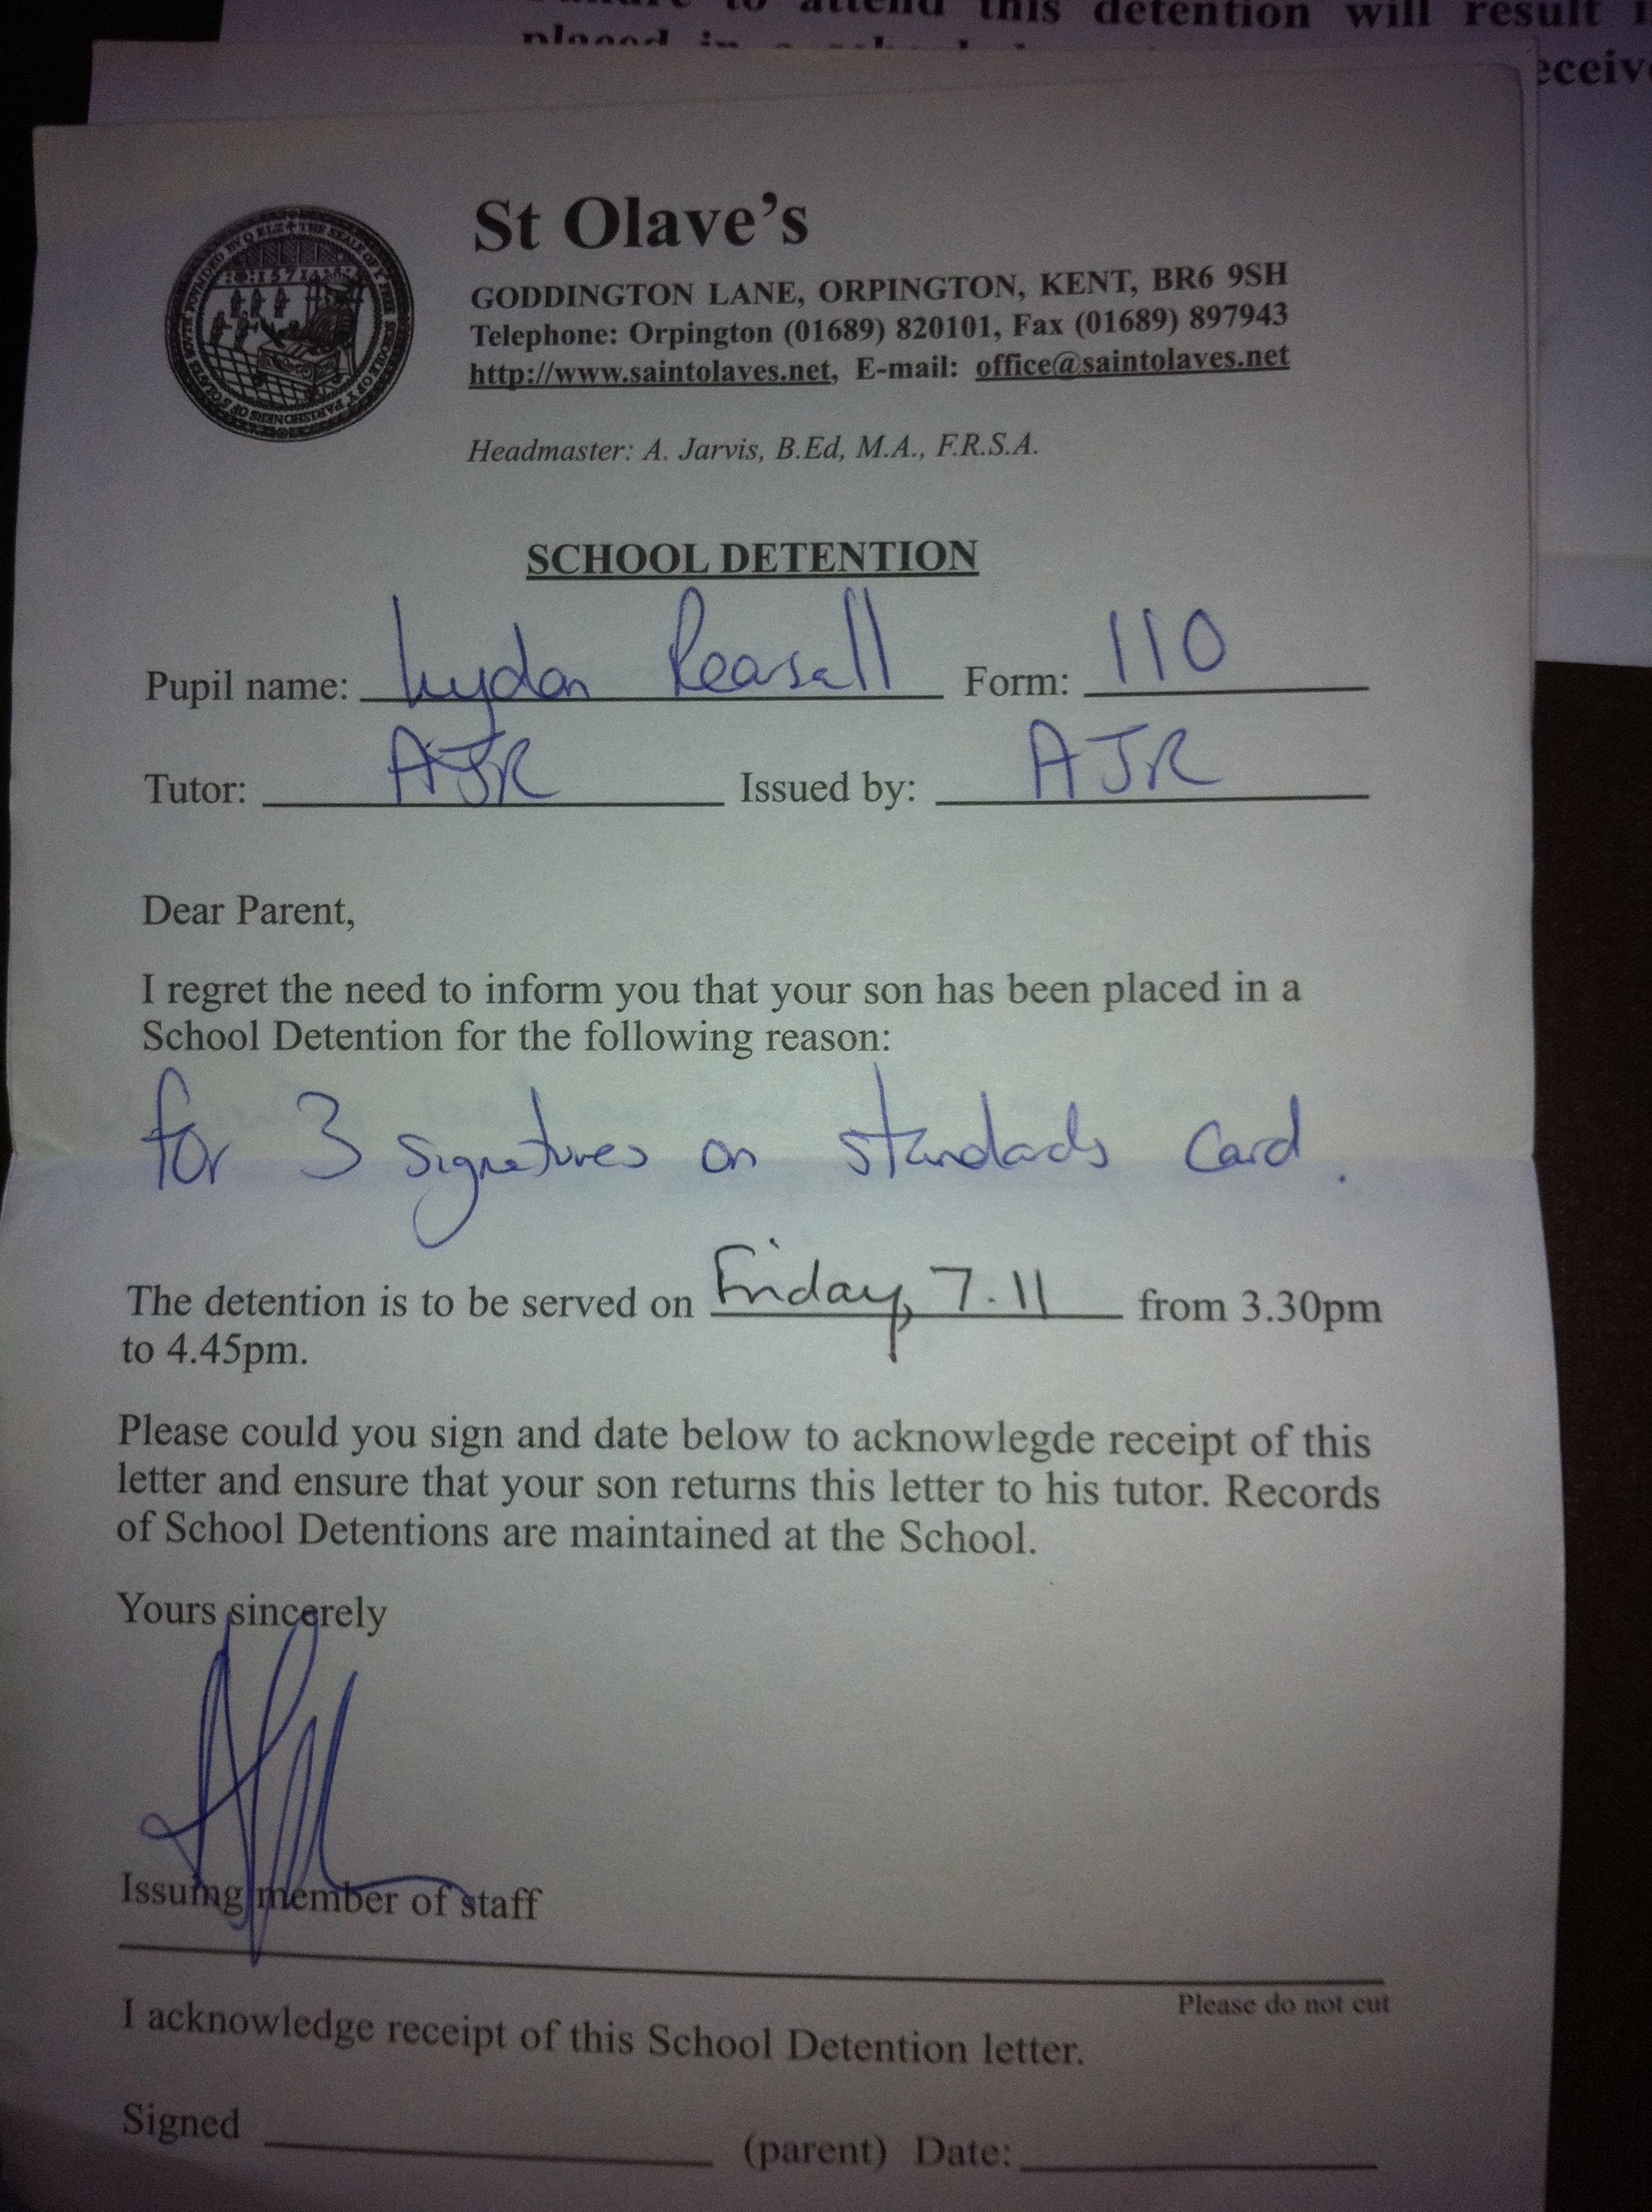 to attend this detention will result
placed in a
St Olave's
GODDINGTON LANE, ORPINGTON, KENT, BR6 9SH
Telephone: Orpington (01689) 820101, Fax (01689) 897943
http://www.saintolaves.net, E-mail: office@saintolaves.net
Headmaster: A. Jarvis, B.Ed, M.A., F.R.S.A.
SCHOOL DETENTION
Pupil name: Lydon Pearsall Form: 110
Tutor: AJR Issued by: AJR
Dear Parent,
I regret the need to inform you that your son has been placed in a
School Detention for the following reason:
for 3 signatures on standards card.
The detention is to be served on Friday, 7.11 from 3.30pm
to 4.45pm.
Please could you sign and date below to acknowlegde receipt of this
letter and ensure that your son returns this letter to his tutor. Records
of School Detentions are maintained at the School.
Yours sincerely
Issuing member of staff
Please do not cut
I acknowledge receipt of this School Detention letter.
Signed (parent) Date: